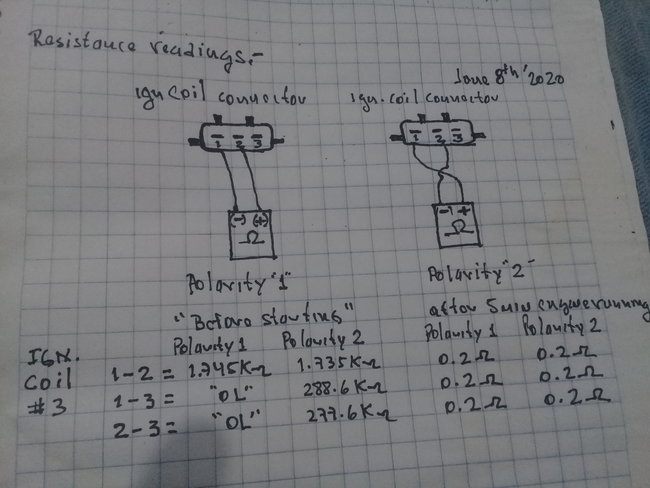 Resistance readings.-
June 8th/2020
Ign Coil connector
Ign. coil connector
1 2 3
1 2 3
(-) (+)
- +
Ω
Ω
Polarity "1"
Polarity "2"
"Before starting"
after 5 min engine running
Polarity 1 Polarity 2 Polarity 1 Polarity 2
IGN. Coil #3
1-2 = 1.745KΩ 1.735KΩ 0.2Ω 0.2Ω
1-3 = "OL" 288.6KΩ 0.2Ω 0.2Ω
2-3 = "OL" 277.6KΩ 0.2Ω 0.2Ω